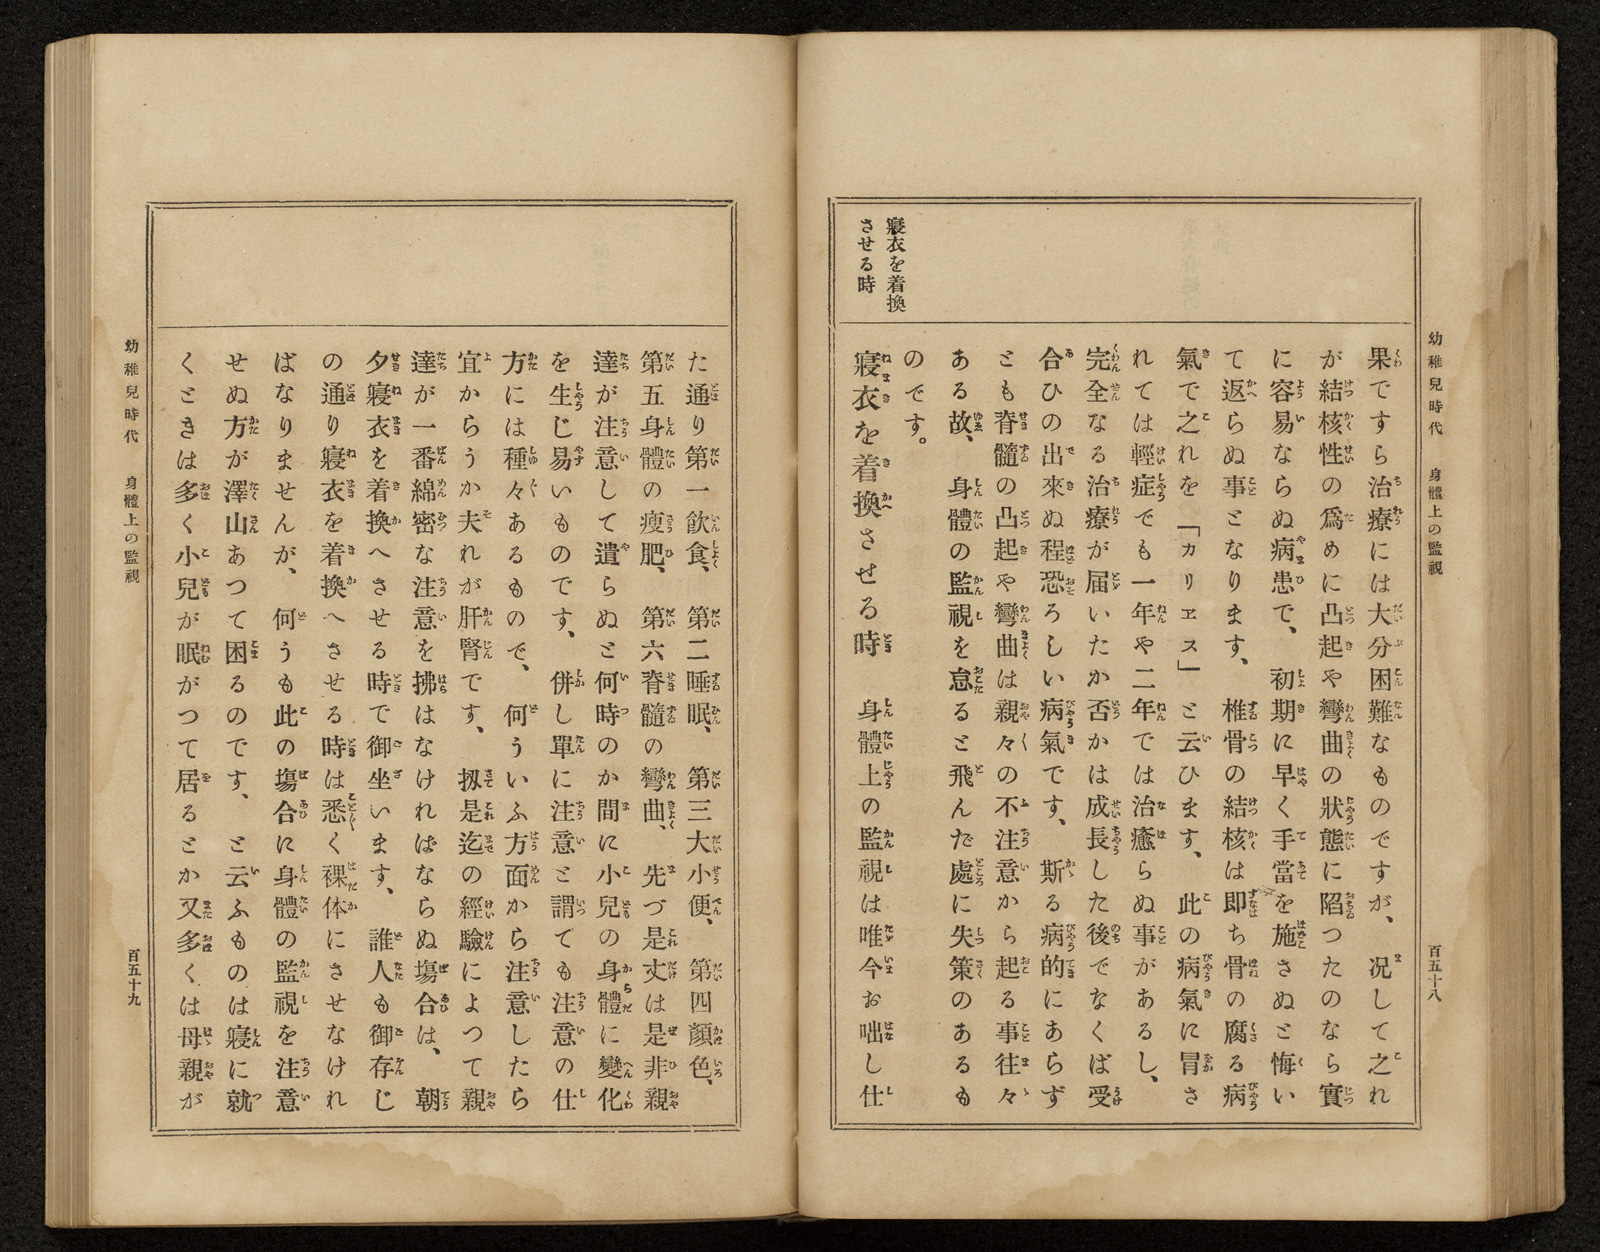 幼稚兒時代　身體上の監視
百五十八
寢衣を着換
させる時
果ですら治療には大分困難なものですが、况して之れ
が結核性の爲めに凸起や彎曲の狀態に陷つたのなら實
に容易ならぬ病患で、初期に早く手當を施さぬと悔い
て返らぬ事となります、椎骨の結核は即ち骨の腐る病
氣で之れを「カリヱス」と云ひます、此の病氣に冒さ
れては輕症でも一年や二年では治癒らぬ事があるし、
完全なる治療が届いたか否かは成長した後でなくば受
合ひの出來ぬ程恐ろしい病氣です、斯る病的にあらず
とも脊髓の凸起や彎曲は親々の不注意から起る事往々
ある故、身體の監視を怠ると飛んだ處に失策のあるも
のです。
寢衣を着換させる時　身體上の監視は唯今お咄し仕
た通り第一飮食、第二睡眠、第三大小便、第四顏色、
第五身體の瘦肥、第六脊髓の彎曲、先づ是丈は是非親
達が注意して遣らぬと何時のか間に小兒の身體に變化
を生じ易いものです、併し單に注意と謂ても注意の仕
方には種々あるもので、何ういふ方面から注意したら
宜からうか夫れが肝腎です、扨是迄の經驗によつて親
達が一番綿密な注意を拂はなければならぬ塲合は、朝
夕寢衣を着換へさせる時で御坐います、誰人も御存じ
の通り寢衣を着換へさせる時は悉く裸体にさせなけれ
ばなりませんが、何うも此の塲合に身體の監視を注意
せぬ方が澤山あつて困るのです、と云ふものは寢に就
くときは多く小兒が眠がつて居るとか又多くは母親が
幼稚兒時代　身體上の監視
百五十九